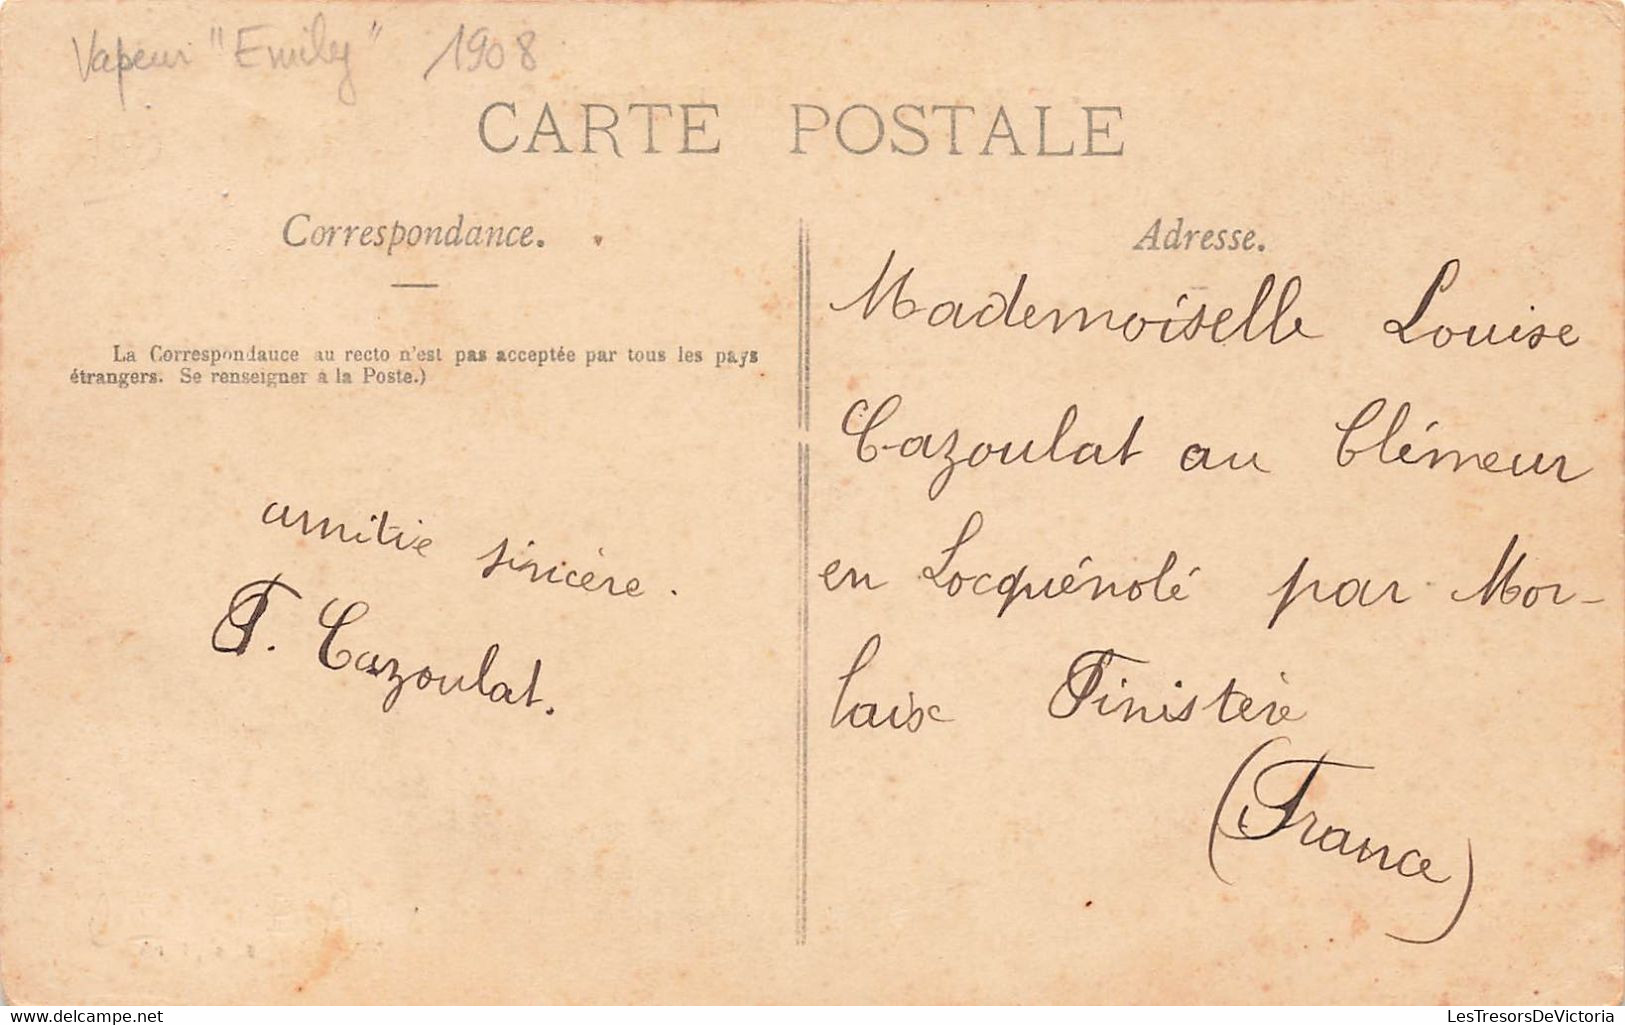 Vapeur "Emily" 1908
CARTE POSTALE
Correspondance.
La Correspondance au recto n'est pas acceptée par tous les pays
étrangers. Se renseigner à la Poste.)
amitié sincère.
F. Cazoulat.
Adresse.
Mademoiselle Louise
Cazoulat au Clémeur
en Locquénolé par Mor-
laix Finistère
(France)
www.delcampe.net
LesTresorsDeVictoria